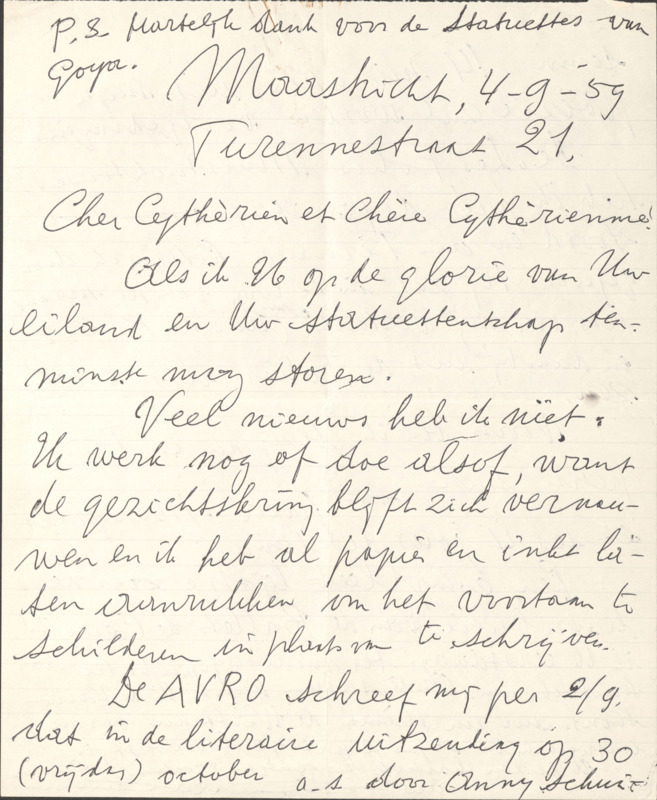 P.S. Hartelijk dank voor de Statuettes van
Goya.
Maastricht, 4-9-59
Turennestraat 21.
Cher Cythèrien et Chère Cythèrienne!
Als ik U op de glorie van Uw
eiland en Uw statuettenschap ten-
minste mag storen.
Veel nieuws heb ik niet.
Ik werk nog of doe alsof, want
de gezichtskring blijft zich vernau-
wen en ik heb al papier en inkt la-
ten aanrukken om het voortaan te
schilderen in plaats van te schrijven.
De AVRO schreef mij per 2/9.
dat in de literaire uitzending op 30
(vrijdag) october a.s door Anny Schuit